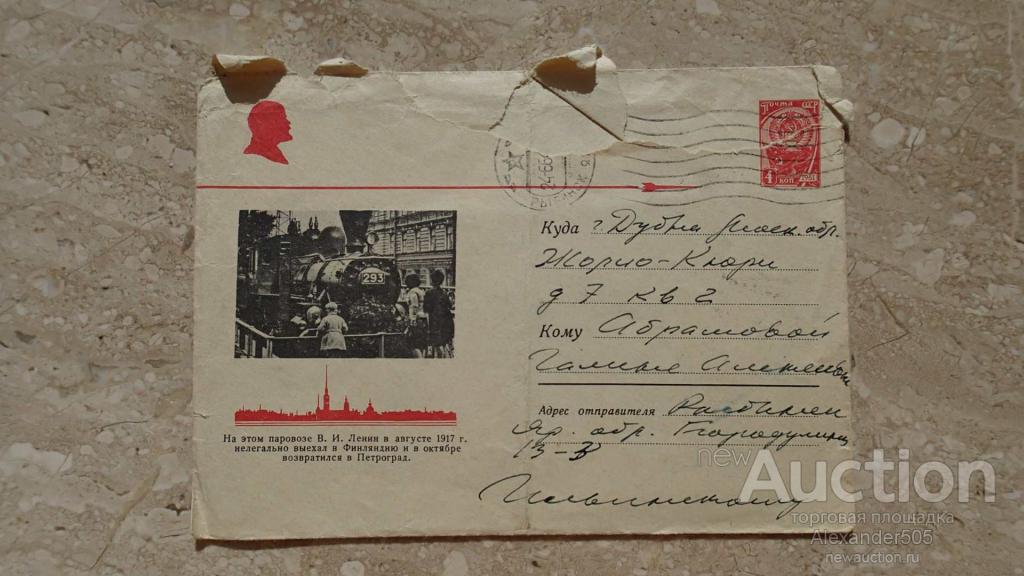 ПОЧТА СССР
4 КОП
24 6 66
293
Куда г. Дубна Моск. обр.
Жолио-Кюри
д 7 кв 2
Кому Абрамовой
Галине
Адрес отправителя
Яр. обр.
13-3
Ильинскому
На этом паровозе В. И. Ленин в августе 1917 г.
нелегально выехал в Финляндию и в октябре
возвратился в Петроград.
newAuction
торговая площадка
Alexander505
newauction.ru